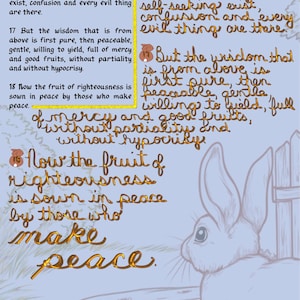 exist, confusion and every evil thing
are there.
17 But the wisdom that is from
above is first pure, then peaceable,
gentle, willing to yield, full of mercy
and good fruits, without partiality
and without hypocrisy.
18 Now the fruit of righteousness is
sown in peace by those who make
peace.
self-seeking exist,
confusion and every
evil thing are there.
17 But the wisdom that
is from above is
first pure, then
peaceable, gentle
willing to yield, full
of mercy and good fruits,
without partiality and
without hypocrisy.
18 Now the fruit of
righteousness
is sown in peace
by those who
make
peace.